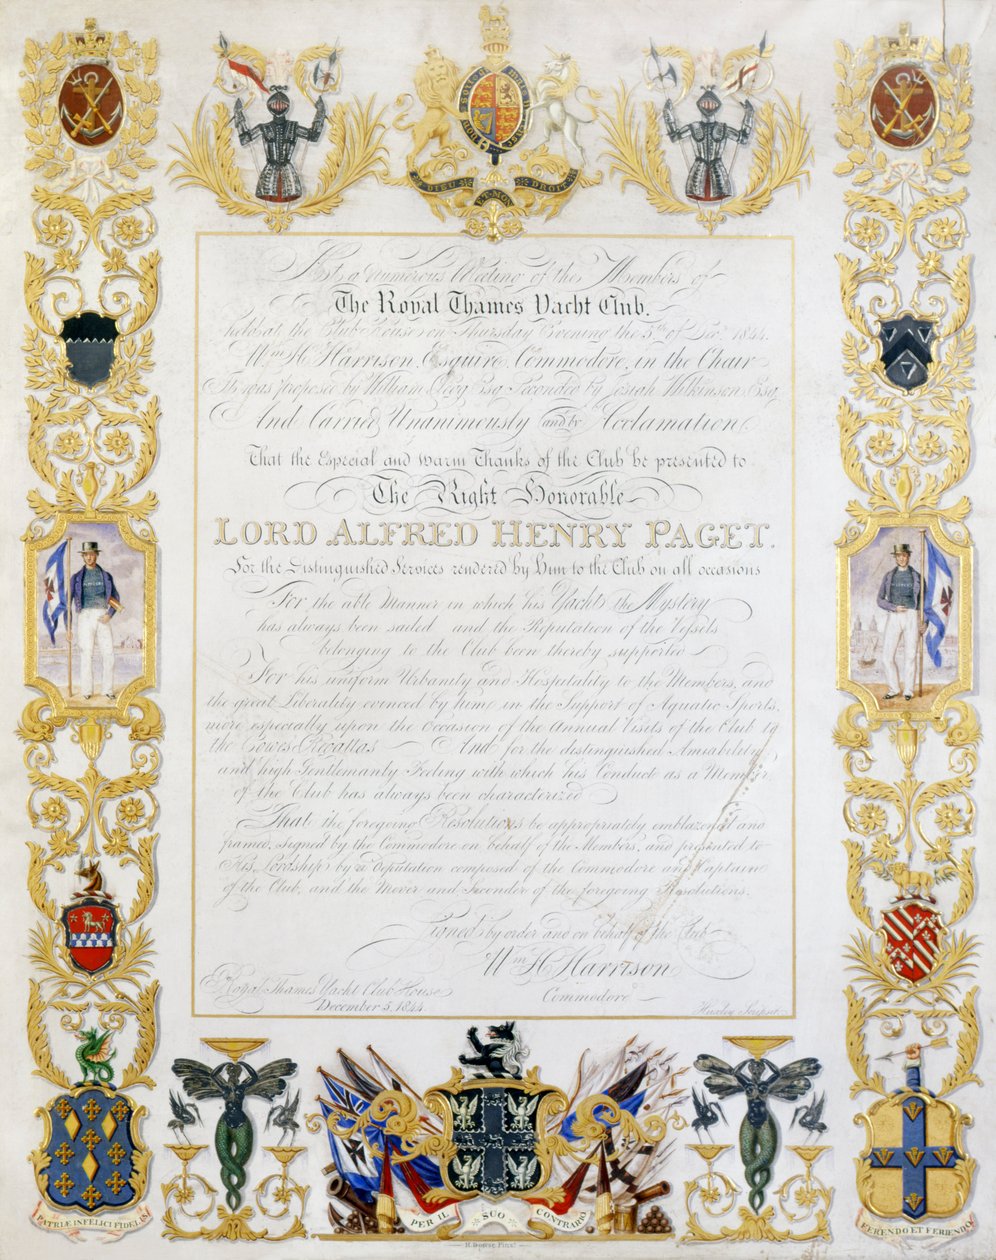 HONI SOIT QUI MAL Y PENSE
DIEU ET MON DROIT
At a Numerous Meeting of the Members of
The Royal Thames Yacht Club.
held at the Club House on Thursday Evening the 5th of Decr. 1844.
Wm. H. Harrison, Esquire, Commodore, in the Chair
It was proposed by William Esq. Seconded by Josiah Wilkinson, Esq.
And Carried Unanimously and by Acclamation,
That the Especial and warm Thanks of the Club be presented to
The Right Honorable
LORD ALFRED HENRY PAGET.
For the Distinguished Services rendered by Him to the Club on all occasions
For the able Manner in which his Yacht the Mystery
has always been sailed and the Reputation of the Vessels
belonging to the Club been thereby supported
For his uniform Urbanity and Hospitality to the Members, and
the great Liberality evinced by him in the Support of Aquatic Sports,
more especially upon the Occasion of the Annual Visits of the Club to
the Cowes Regattas And for the distinguished Amiability
and high Gentlemanly Feeling with which his Conduct as a Member
of the Club has always been characterized
That the foregoing Resolutions be appropriately emblazoned and
framed, signed by the Commodore on behalf of the Members, and presented to
His Lordship by a Deputation composed of the Commodore and Captain
of the Club, and the Mover and Seconder of the foregoing Resolutions.
Signed by order and on behalf of the Club
Wm. H. Harrison
Commodore
Royal Thames Yacht Club House
December 5, 1844.
Huxley Scripsit.
PATRIÆ INFELICI FIDELIS
PER IL SUO CONTRARIO
FERENDO ET FERIENDO